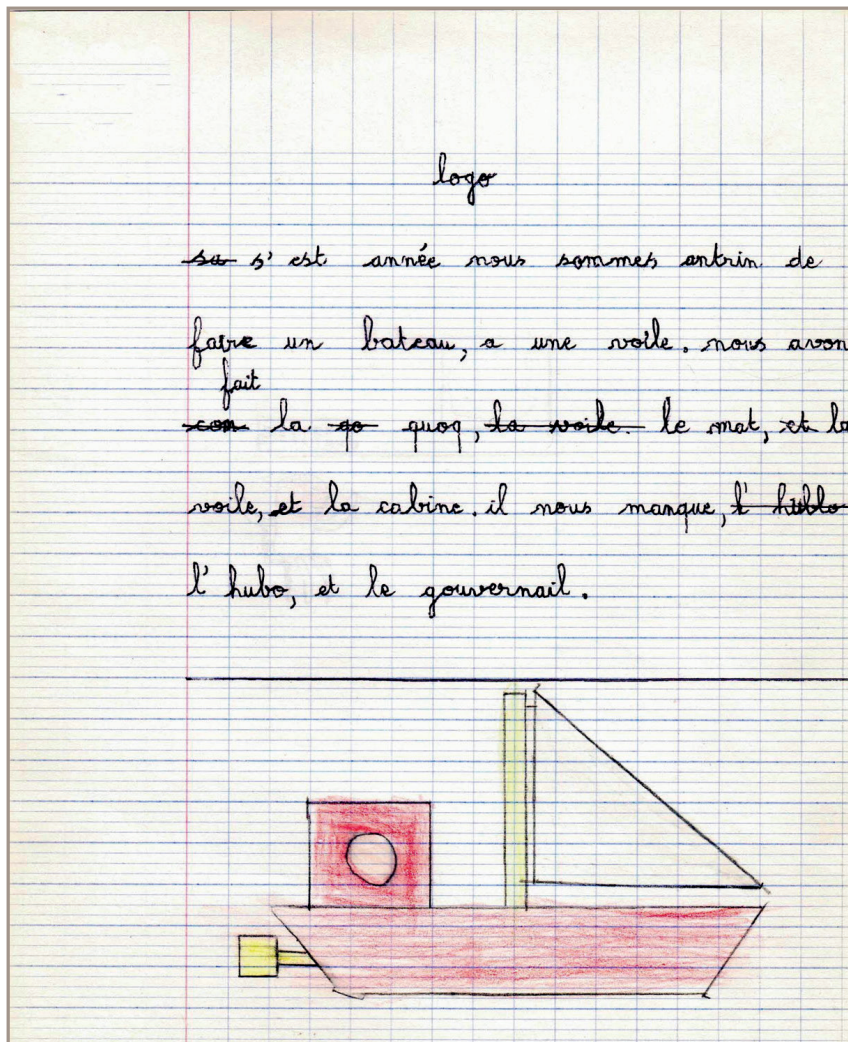 logo
sa s'est année nous sommes antrin de
faire un bateau, a une voile. nous avon
fait
con la qo quoq, la voile. le mat, et la
voile, et la cabine. il nous manque, l' hublo
l' hubo, et le gouvernail.